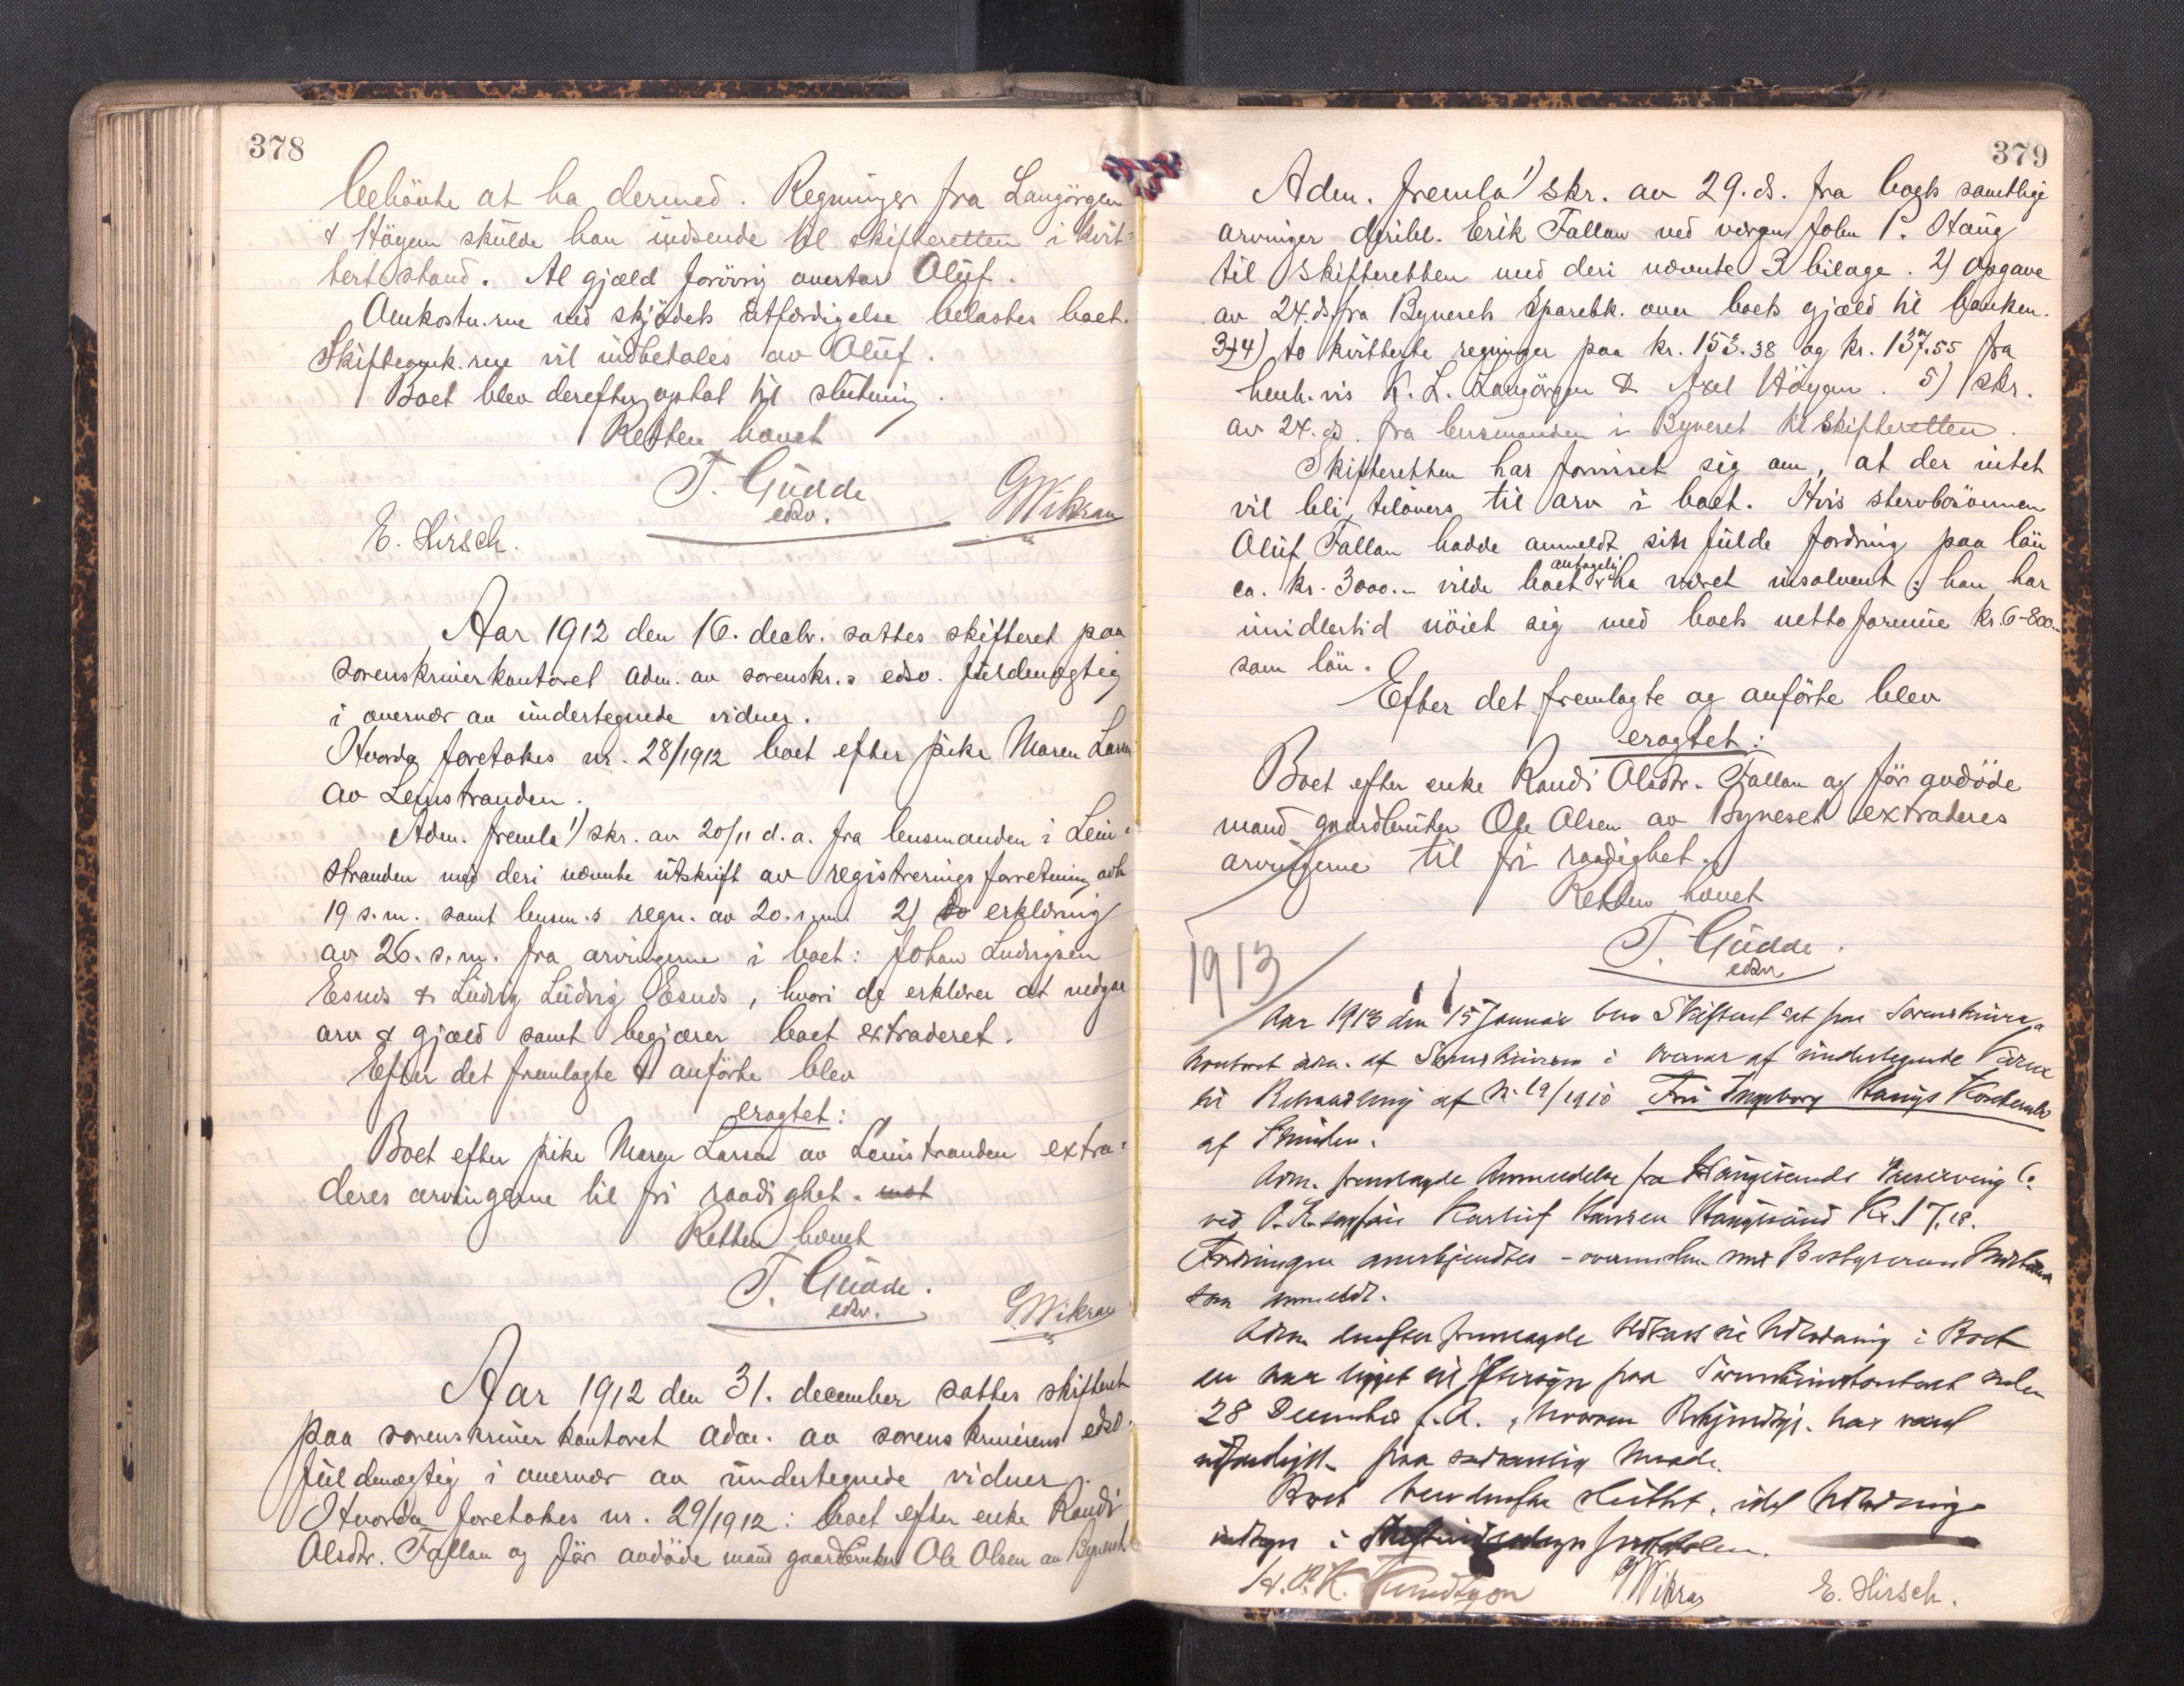 378
behövte at ha dermed. Regninger fra Langörgen
& Höyem skulde han indsende til skifteretten i kvit-
tert stand. Al gjæld forövrig overtar Oluf.
Omkostn.rne ved skjödets utfærdigelse belastes boet.
Skifteomk.rne vil indbetales av Oluf.
Boet blev derefter optat til slutning.
Retten hævet
T. Gudde
edsv.
GWikran
E. Hirsch.
Aar 1912 den 16. decbr. sattes skifteret paa
sorenskriverkontoret adm. av sorenskr.s edsv. fuldmægtig
i overvær av undertegnede vidner.
Hvorda foretokes nr. 28/1912 boet efter pike Maren Larsen
av Leinstranden.
Adm. fremla 1) skr. av 20/11 d.a. fra lensmanden i Lein-
stranden med deri nævnte utskrift av registreringsforretning avh.
19 s.m. samt lensm.s regn. av 20. s.m. 2) erklæring
av 26. s.m. fra arvingerne i boet: Johan Ludvigsen
Esnes & Ludvig Ludvig Esnes, hvori de erklærer at vedgaa
arv & gjæld samt begjærer boet extraderet.
Efter det fremlagte & anförte blev
eragtet:
Boet efter pike Maren Larsen av Leinstranden extra-
deres arvingerne til fri raadighet.
Retten hævet
T. Gudde.
edsv.
GWikran
Aar 1912 den 31. december sattes skifteret
paa sorenskriverkontoret adm. av sorenskriverens edsv.
fuldmægtig i overvær av undertegnede vidner.
Hvorda foretokes nr. 29/1912: boet efter enke Randi
Olsdtr. Fallan og för avdöde mand gaardbruker Ole Olsen av Byneset
379
Adm. fremla 1) skr. av 29. ds. fra boets samtlige
arvinger deribl. Erik Fallan ved vergen John P. Haug
til skifteretten med deri nævnte 3 bilage. 2) Opgave
av 24. ds fra Bynesets Sparebk. over boets gjæld til banken.
3+4) to kvitterte regninger paa kr. 153.38 og kr. 137.55 fra
henh.vis K. L. Langörgen & Axel Höyem. 5) skr.
av 24. ds. fra lensmanden i Byneset til skifteretten.
Skifteretten har forvisset sig om, at der intet
vil bli tilovers til arv i boet. Hvis stervbosönnen
Oluf Fallan hadde anmeldt sin fulde fordring paa lön
ca. kr. 3000.- vilde boet antagelig ha været insolvent; han har
imidlertid nöiet sig med boets netto formue kr. 6-800.-
som lön.
Efter det fremlagte og anförte blev
eragtet:
Boet efter enke Randi Olsdtr. Fallan og för avdöde
mand gaardbruker Ole Olsen av Byneset extraderes
arvingerne til fri raadighet.
Retten hævet
T. Gudde.
edsv
1913
Aar 1913 den 15 Januar blev Skifteret sat paa Sorenskriver-
kontoret adm. af Sorenskriveren i Overvær af undertegnede Vidner
til Behandling af Nr. 19/1910 Fru Ingeborg Haugs
af
Adm. fremlagde Anmeldelse fra Haugesunds Preserving Co.
ved Hansen Haugesund Kr. 17,18.
Fordringen anerkjendtes
som anmeldt.
Adm. derefter fremlagde Udkast til Udlodning i Boet
der har ligget til Eftersyn paa Sorenskriverkontoret siden
28 December f. A., hvorom har været
paa sædvanlig Maade.
Boet blev derefter sluttet, idet Udlodning
indtages i
E. Hirsch.